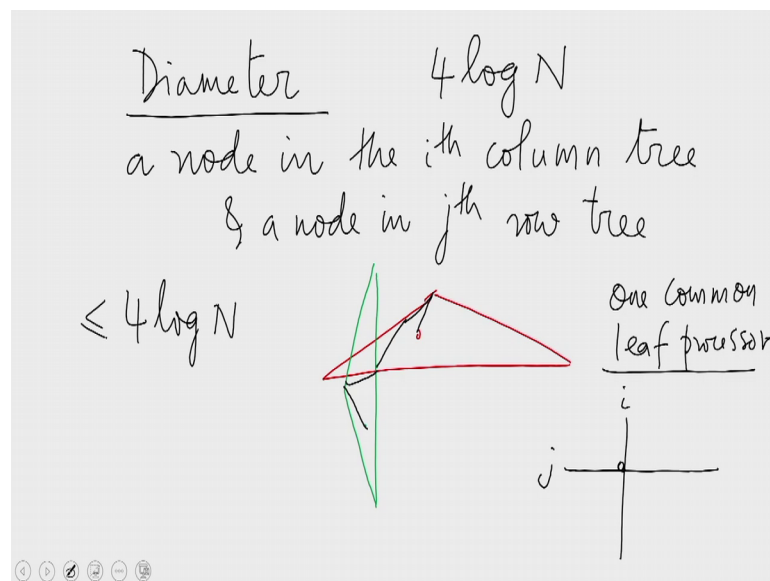 Diameter 4 log N
a node in the ith column tree
& a node in jth row tree
≤ 4 log N
One common
leaf processor
i
j